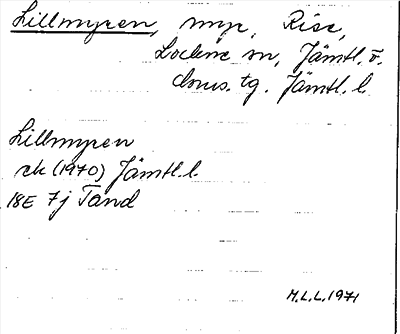 Lillmyren, myr, Rise,
Lockne sn, Jämtl. v.
doms. tg. Jämtl. l.
Lillmyren
rk (1970) Jämtl. l.
18E 7j Tand
M.L.L. 1971